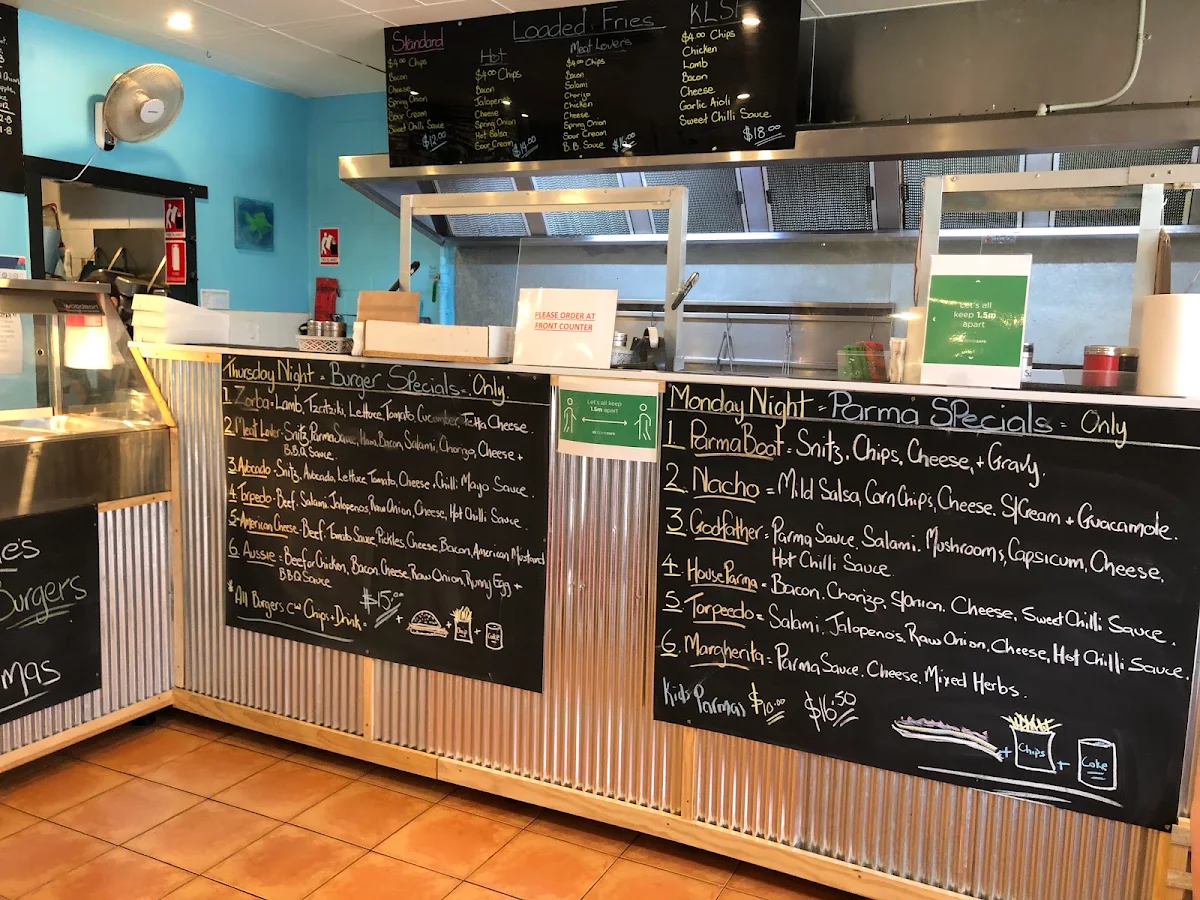 Loaded Fries
Standard
$4.00 Chips
Bacon
Cheese
Spring Onion
Sour Cream
Sweet Chilli Sauce
$12.00
Hot
$4.00 Chips
Bacon
Jalapeno
Cheese
Spring Onion
Hot Salsa
Sour Cream
Meat Lovers
$4.00 Chips
Bacon
Salami
Chorizo
Chicken
Cheese
Spring Onion
Sour Cream
B.B. Sauce
KLS
$4.00 Chips
Chicken
Lamb
Bacon
Cheese
Garlic Aioli
Sweet Chilli Sauce
$18.00
PLEASE ORDER AT
FRONT COUNTER
Let's all
keep 1.5m
apart
Let's all keep
1.5m apart
Thursday Night = Burger Specials = Only.
1. Zorba = Lamb, Tzatziki, Lettuce, Tomato, Cucumber, Fetta Cheese.
2. Meat Lover = Snitz, Parma Sauce, Ham, Bacon, Salami, Chorizo, Cheese +
B.B.Q Sauce.
3. Avocado = Snitz, Avocada, Lettuce, Tomato, Cheese, Chilli Mayo Sauce.
4. Torpedo = Beef, Salami, Jalapenos, Raw Onion, Cheese, Hot Chilli Sauce.
5. American Cheese = Beef, Tomato Sauce, Pickles, Cheese, Bacon, American Mustard
6. Aussie = Beef or Chicken, Bacon, Cheese, Raw Onion, Runny Egg +
BBQ Sauce
* All Burgers c/w Chips + Drink = $15.00
+ Chips + Coke
Monday Night = Parma Specials = Only
1. Parma Boat = Snitz, Chips, Cheese, + Gravy.
2. Nacho = Mild Salsa, Corn Chips, Cheese, S/Cream + Guacamole.
3. Godfather = Parma Sauce, Salami, Mushrooms, Capsicum, Cheese,
Hot Chilli Sauce.
4. House Parma = Bacon, Chorizo, S/onion, Cheese, Sweet Chilli Sauce.
5. Torpeedo = Salami, Jalopeno's, Raw Onion, Cheese, Hot Chilli Sauce.
6. Margherita = Parma Sauce, Cheese, Mixed Herbs.
Kids Parmas $10.00 $16.50
+ Chips + Coke
Burgers